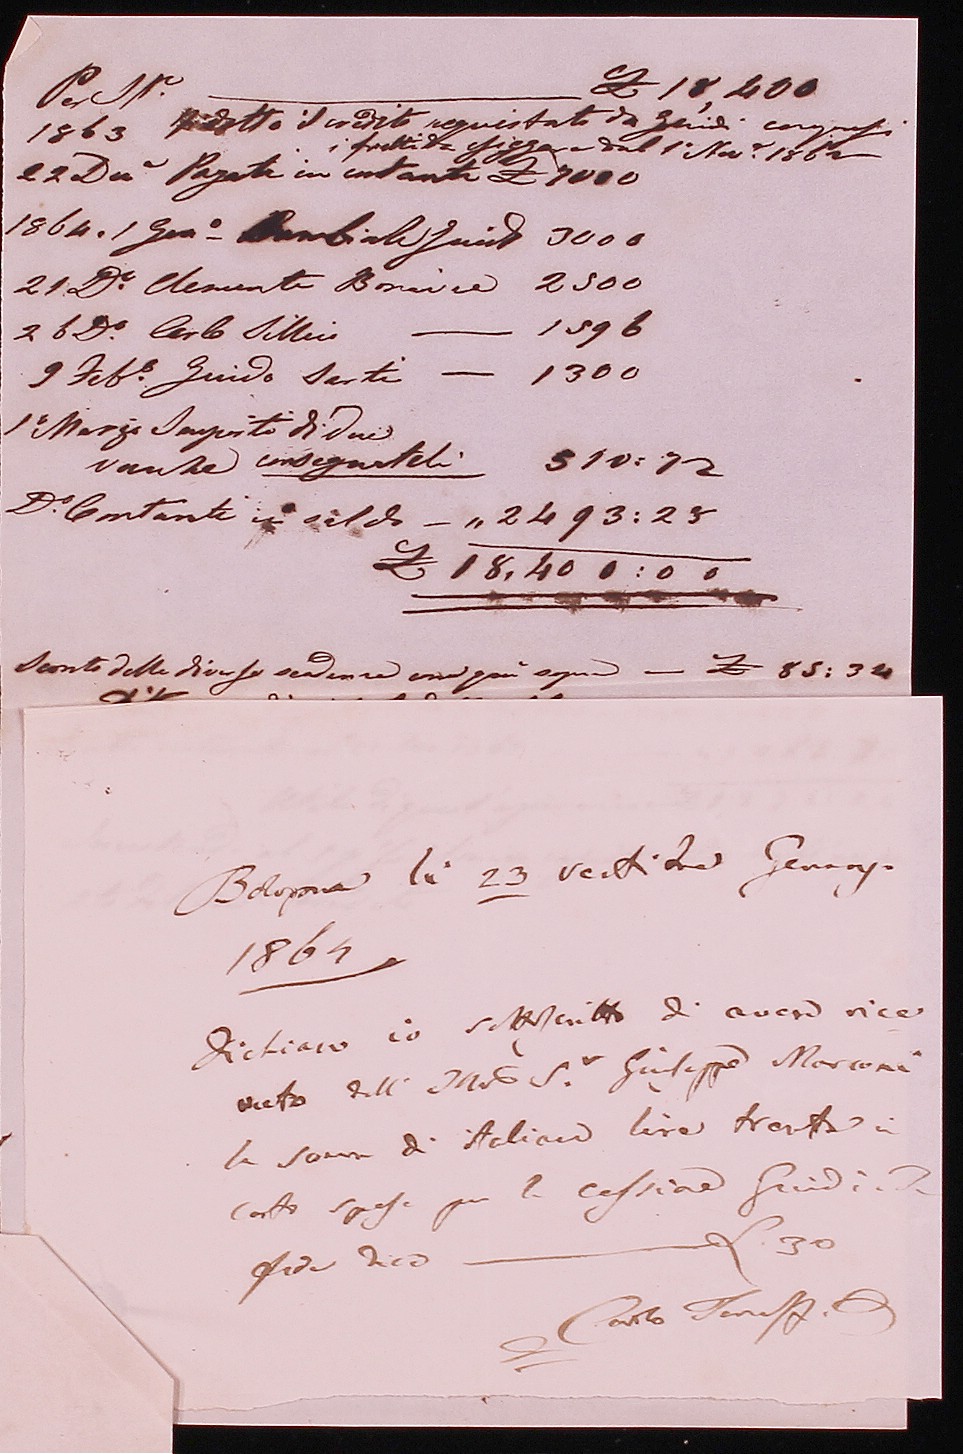 Per Sr. £ 18,400
1863 Ridotto il credito acquistato da Guidi compresi
i frutti da esiggere dal 1º Nov. 1862
22 Dec. Pagati in contanti £ 7000
1864. 1 Gen.º Cambiale Guidi 3000
21 Dº. Clemente 2500
26 Dº. Carlo 1596
9 Feb.º Guido Sarti 1300
1º Marzo Importi di Due
vanche consegnateli 510:72
Dº. Contanti a saldo „2493:28
£ 18,400:00
Sconto delle diverse scadenze come qui sopra £ 85:34
Bologna li 23 venti tre Gennajo
1864
Dichiaro io sottoscritto di avere rice
vuto dall' Illmo Sr. Giuseppe Marconi
la somma di italiane lire trenta in
conto spese per la cessione Guidi in
fede dico £. 30
Carlo